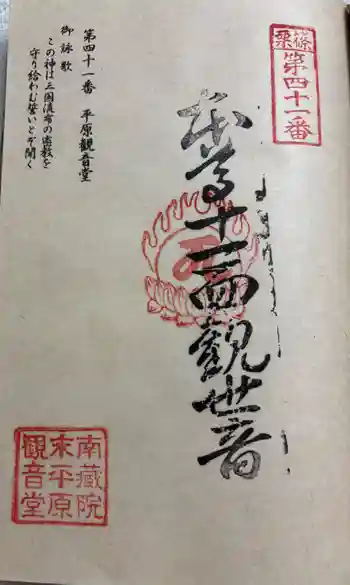 篠栗
第四十一番
本尊十一面観世音
第四十一番　平原観音堂
御詠歌
この神は三国流布の密教を
守り給わむ誓いとぞ聞く
南蔵院
末平原
観音堂